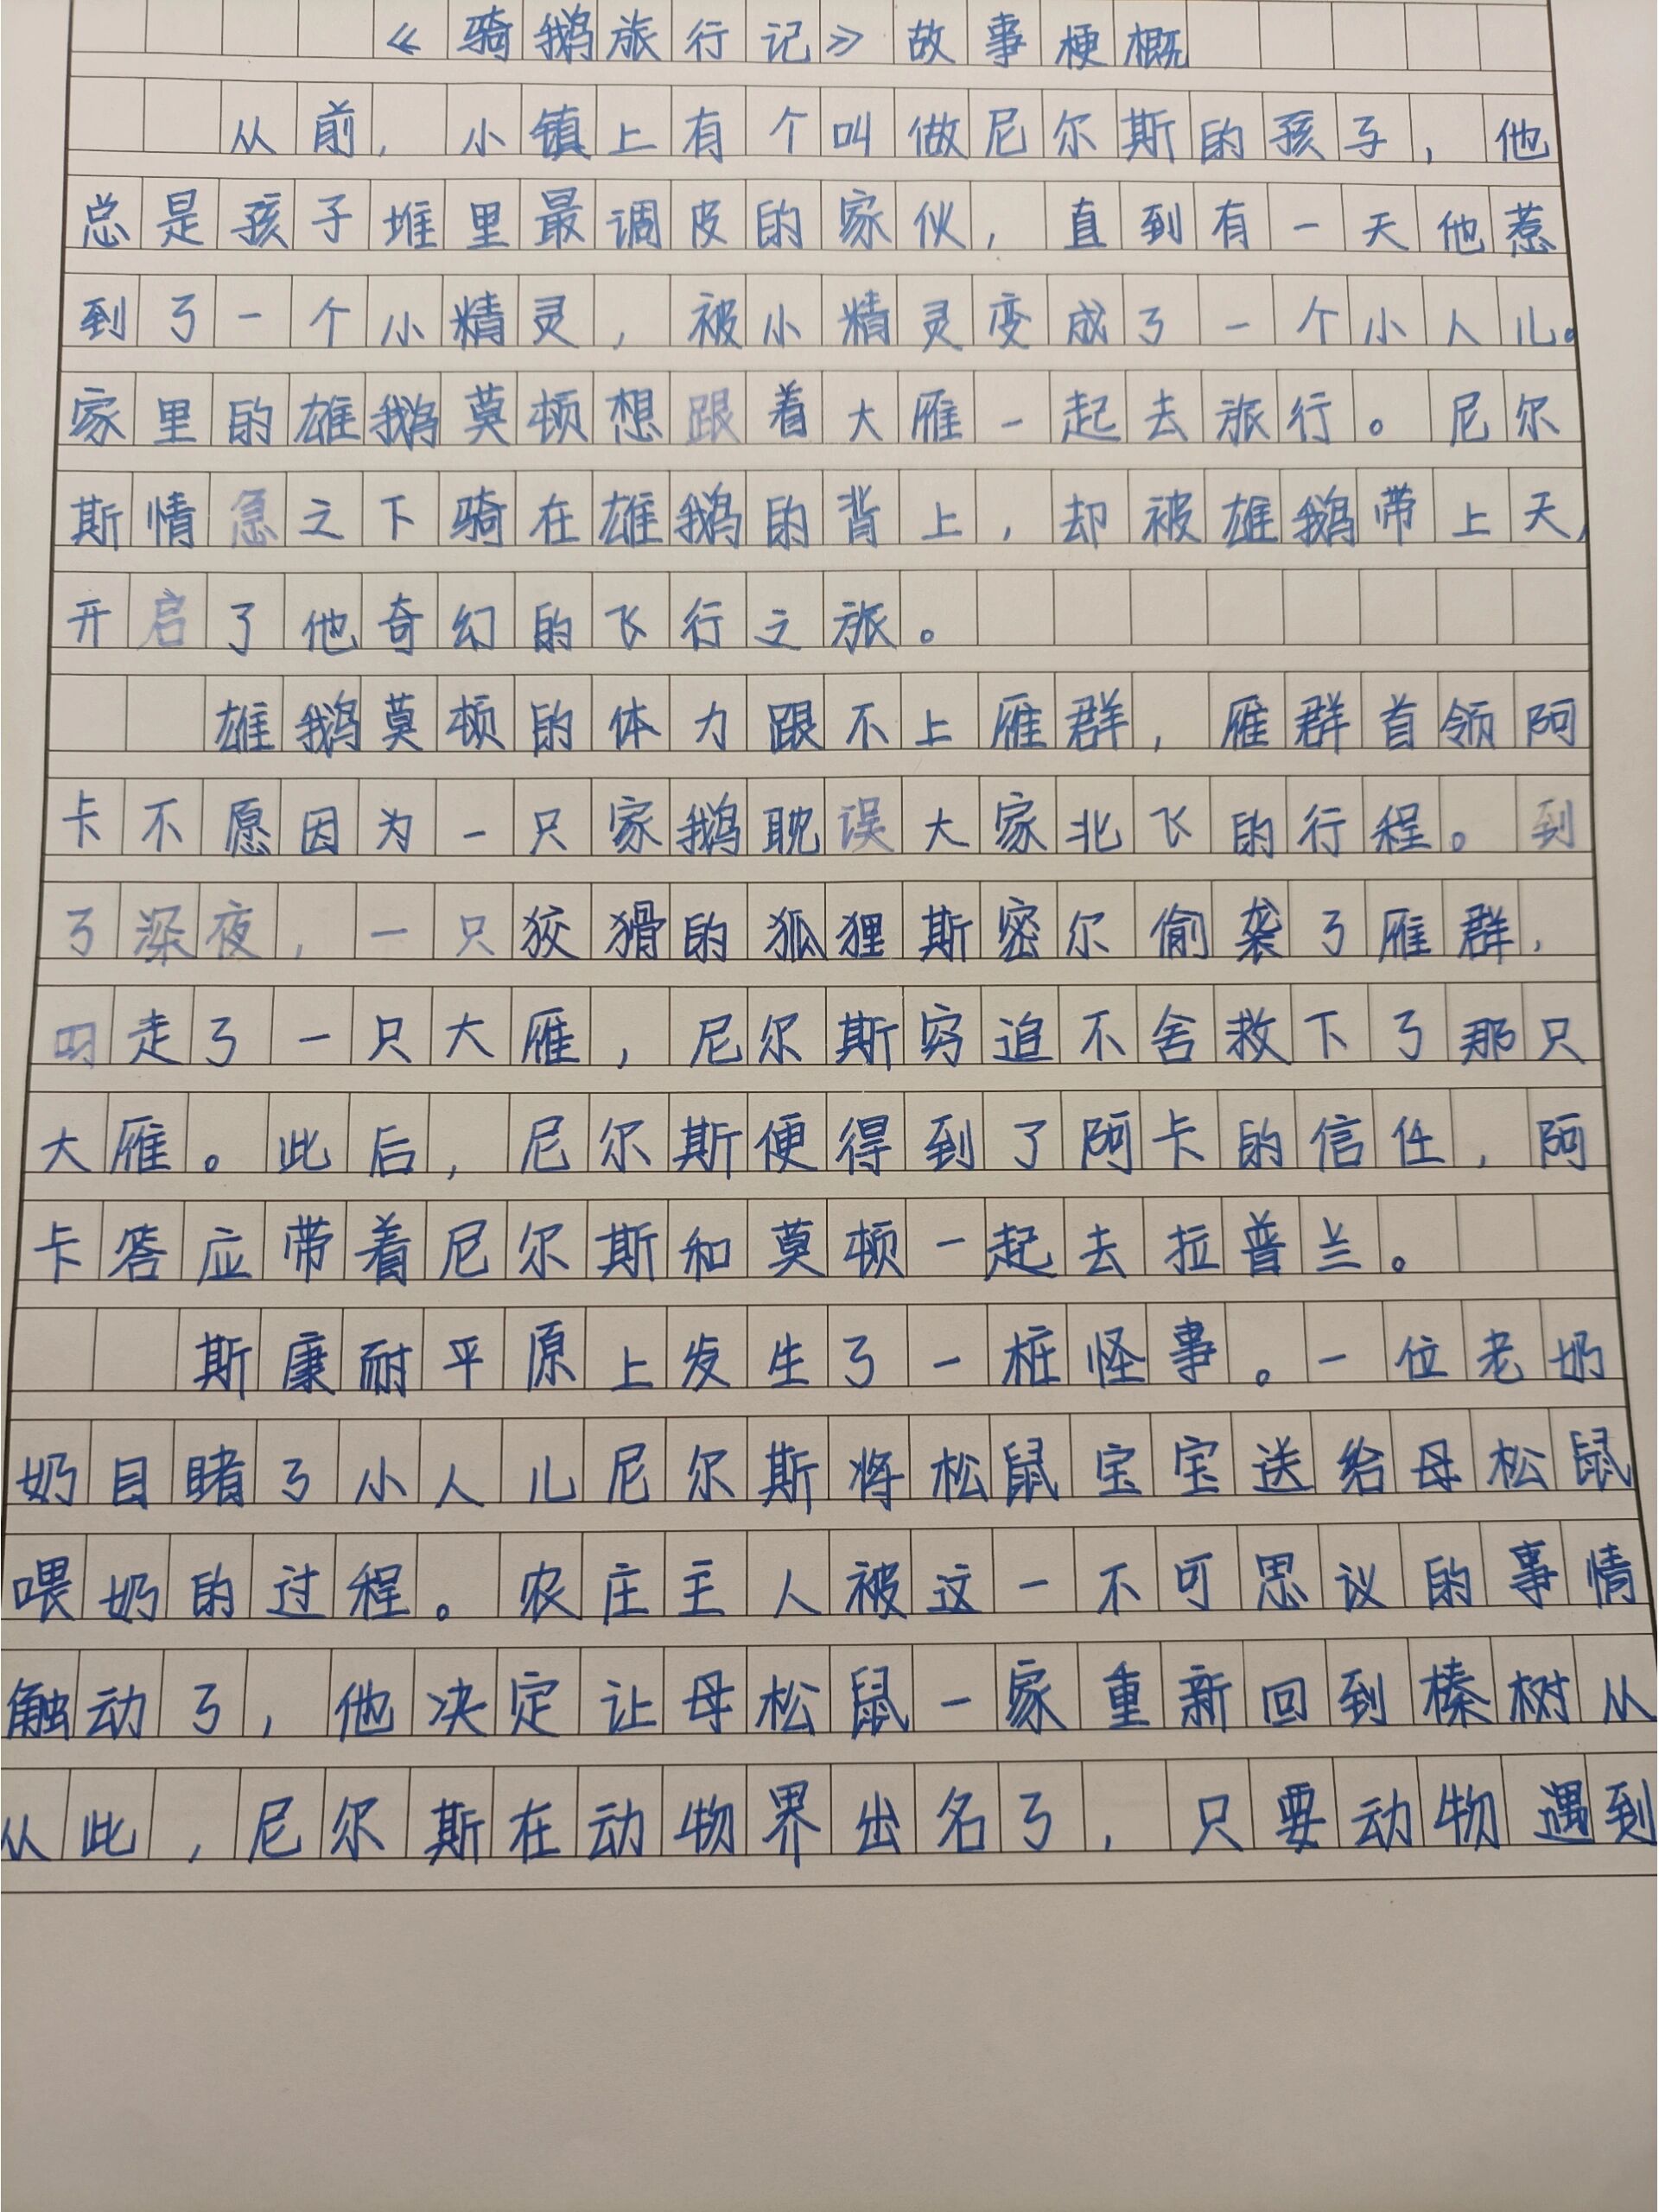 《骑鹅旅行记》故事梗概
从前，小镇上有个叫做尼尔斯的孩子，他
总是孩子堆里最调皮的家伙，直到有一天他惹
到了一个小精灵，被小精灵变成了一个小人儿。
家里的雄鹅莫顿想跟着大雁一起去旅行。尼尔
斯情急之下骑在雄鹅的背上，却被雄鹅带上天，
开启了他奇幻的飞行之旅。
雄鹅莫顿的体力跟不上雁群，雁群首领阿
卡不愿因为一只家鹅耽误大家北飞的行程。到
了深夜，一只狡猾的狐狸斯密尔偷袭了雁群，
叼走了一只大雁，尼尔斯穷追不舍救下了那只
大雁。此后，尼尔斯便得到了阿卡的信任，阿
卡答应带着尼尔斯和莫顿一起去拉普兰。
斯康耐平原上发生了一桩怪事。一位老奶
奶目睹了小人儿尼尔斯将松鼠宝宝送给母松鼠
喂奶的过程。农庄主人被这一不可思议的事情
触动了，他决定让母松鼠一家重新回到榛树从
从此，尼尔斯在动物界出名了，只要动物遇到